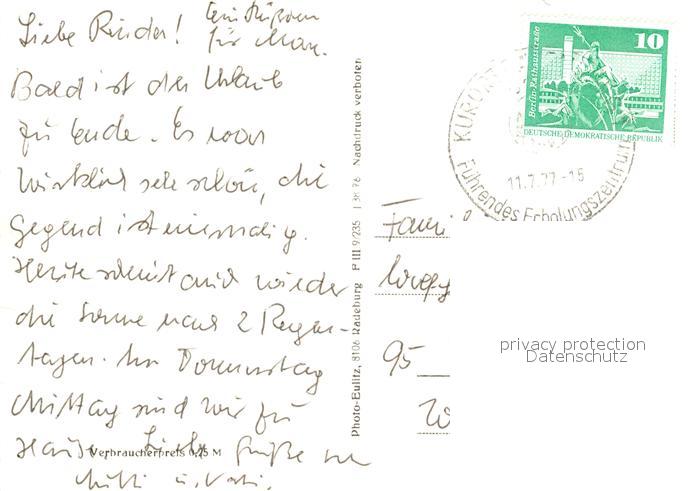 Liebe Kinder! Ein Küßchen
für Max.
Bald ist der Urlaub
zu Ende. Es war
wirklich sehr schön, die
Gegend ist einmalig.
Heute scheint auch wieder
die Sonne nach 2 Regen-
tagen. Am Donnerstag
Mittag sind wir zu
Hause. Liebe Grüße von
Mutti u. Vati.
Verbraucherpreis 0,25 M
Photo-Eulitz, 8106 Radeburg F III 9/235 138 76 Nachdruck verboten
Berlin-Rathausstraße
10
DEUTSCHE DEMOKRATISCHE REPUBLIK
KURORT
11.7.77-15
Führendes Erholungszentrum
Fami
95
privacy protection
Datenschutz